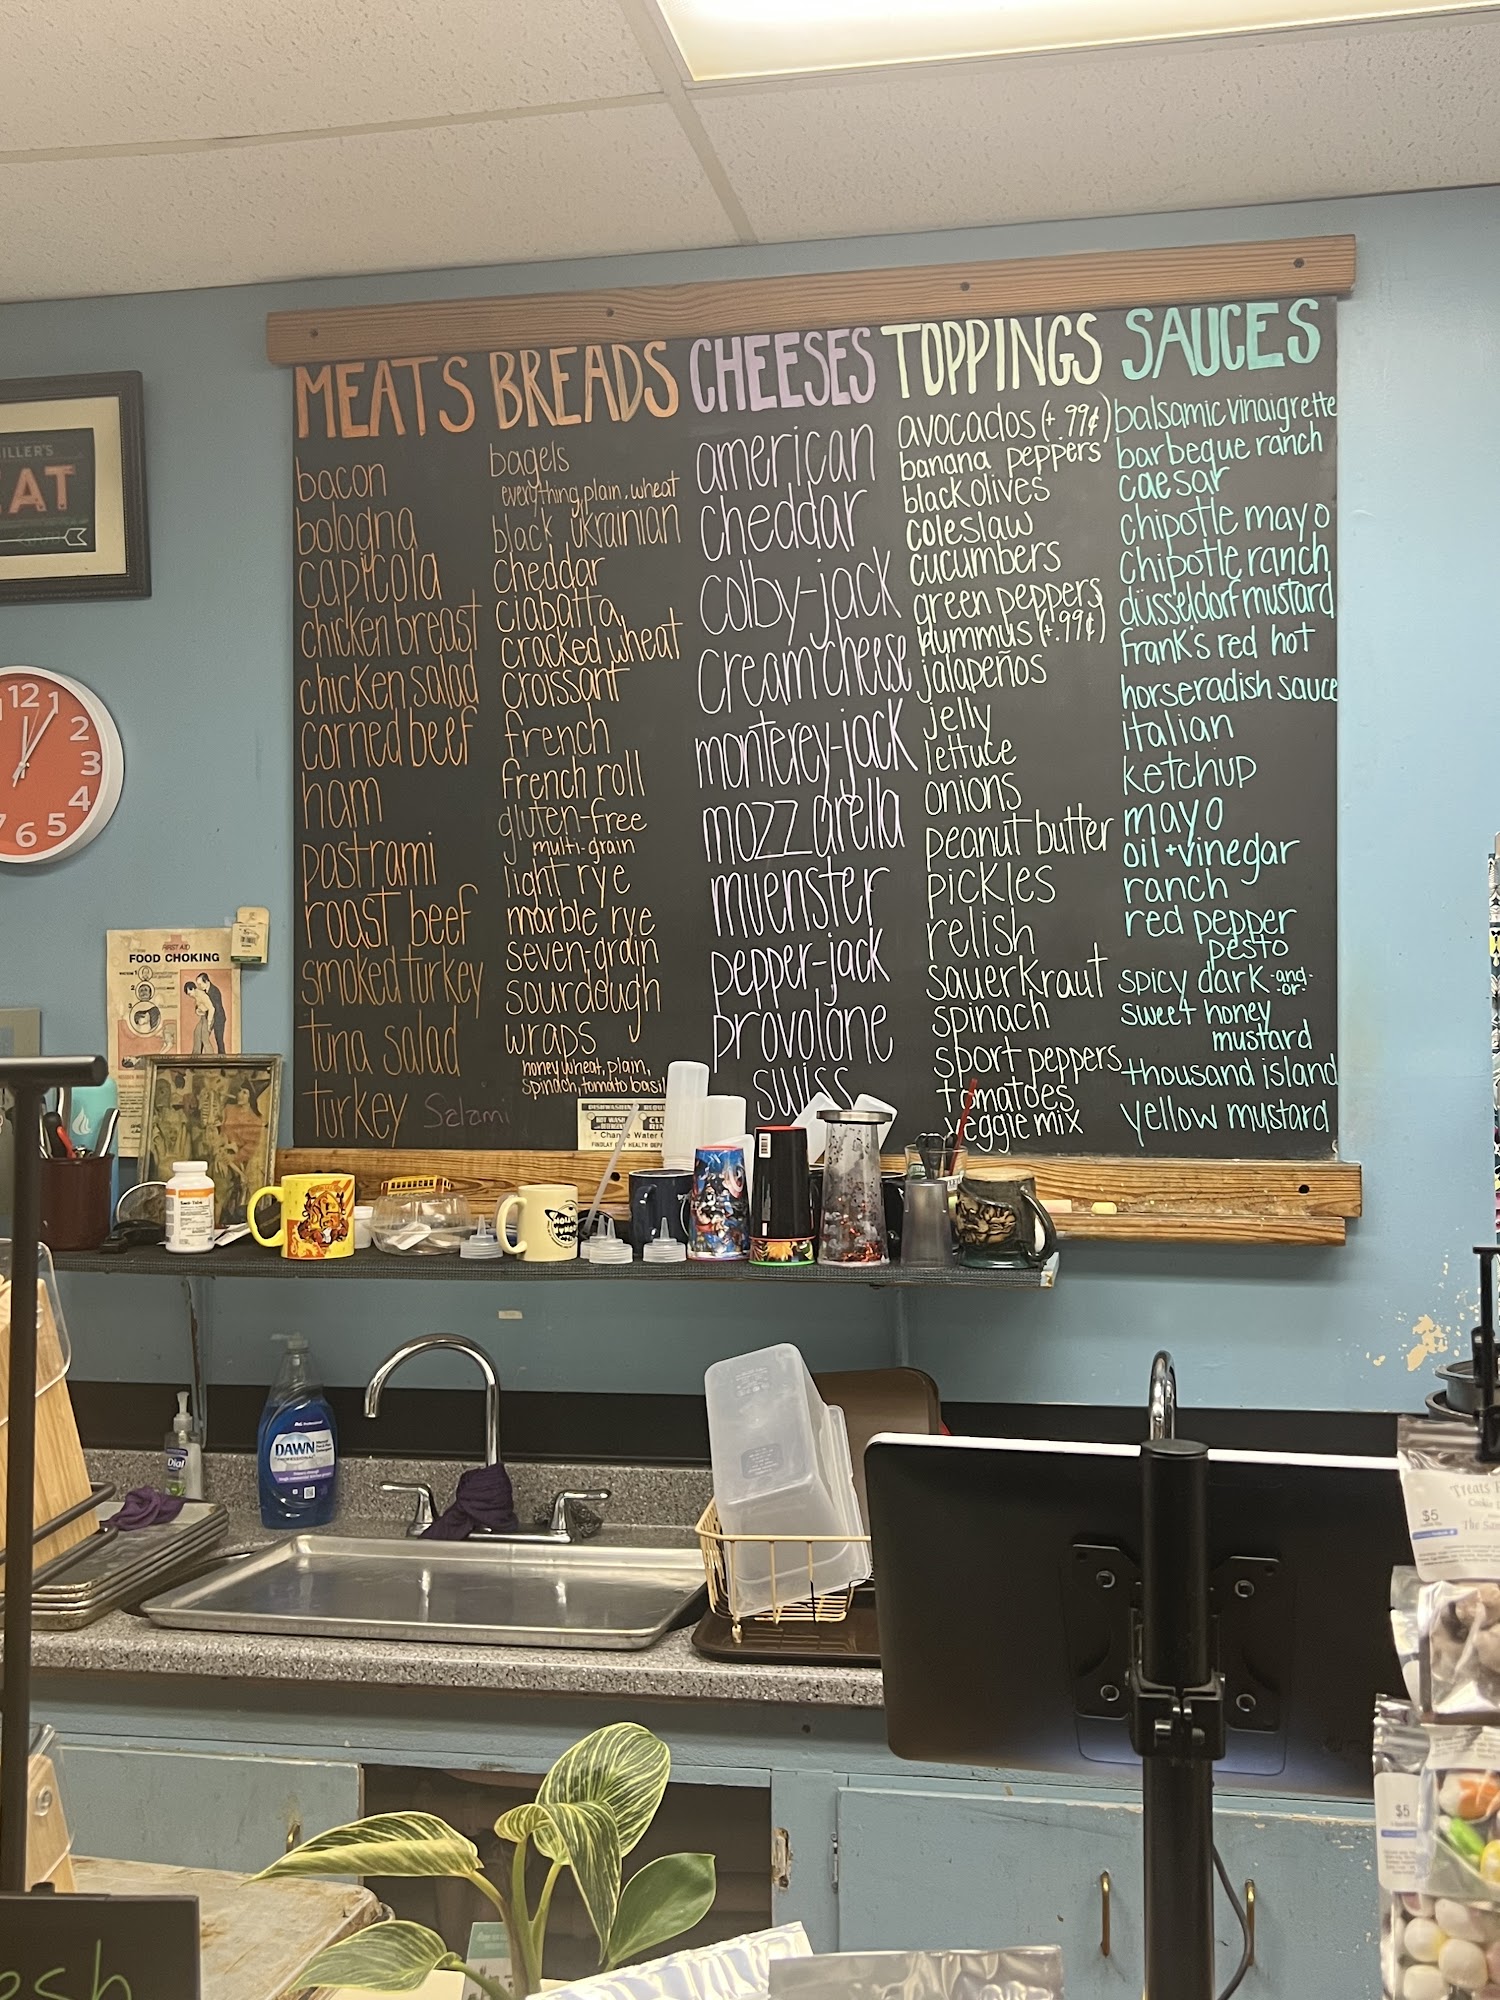 MEATS
bacon
bologna
capicola
chicken breast
chicken salad
corned beef
ham
pastrami
roast beef
smoked turkey
tuna salad
turkey Salami
BREADS
bagels
everything, plain, wheat
black ukrainian
cheddar
ciabatta
cracked wheat
croissant
french
french roll
gluten-free
multi-grain
light rye
marble rye
seven-grain
sourdough
wraps
honey wheat, plain,
spinach, tomato basil
CHEESES
american
cheddar
colby-jack
cream cheese
monterey-jack
mozzarella
muenster
pepper-jack
provolone
swiss
TOPPINGS
avocados (+.99¢)
banana peppers
black olives
coleslaw
cucumbers
green peppers
hummus (+.99¢)
jalapeños
jelly
lettuce
onions
peanut butter
pickles
relish
sauerkraut
spinach
sport peppers
tomatoes
veggie mix
SAUCES
balsamic vinaigrette
barbeque ranch
caesar
chipotle mayo
chipotle ranch
düsseldorf mustard
frank's red hot
horseradish sauce
italian
ketchup
mayo
oil + vinegar
ranch
red pepper
pesto
spicy dark -and-
-or-
sweet honey
mustard
thousand island
yellow mustard
ILLER'S
EAT
12
1
2
3
4
5
6
7
FIRST AID
FOOD CHOKING
DAWN
Dial
Treats
$5
$5
esh